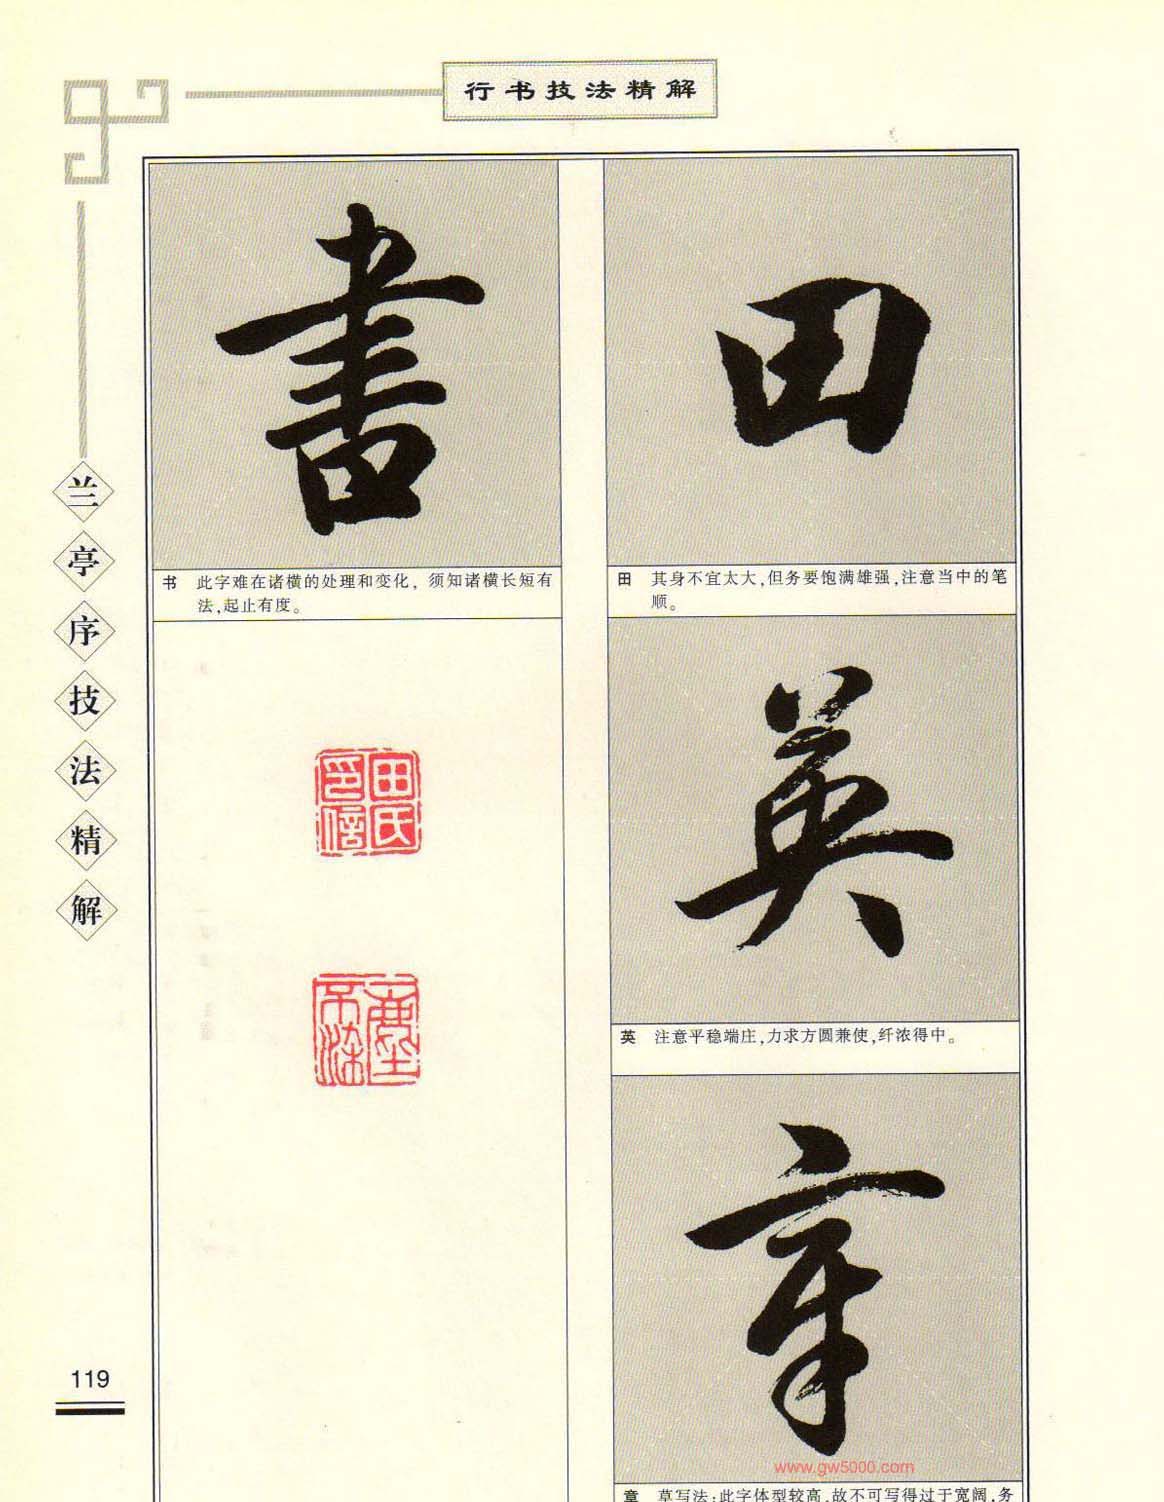 行书技法精解
兰亭序技法精解
田
田 其身不宜太大,但务要饱满雄强,注意当中的笔
顺。
英
英 注意平稳端庄,力求方圆兼使,纤浓得中。
章
章 草写法:此字体型较高,故不可写得过于宽阔,务
書
书 此字难在诸横的处理和变化，须知诸横长短有
法,起止有度。
田氏
印信
119
www.gw5000.com